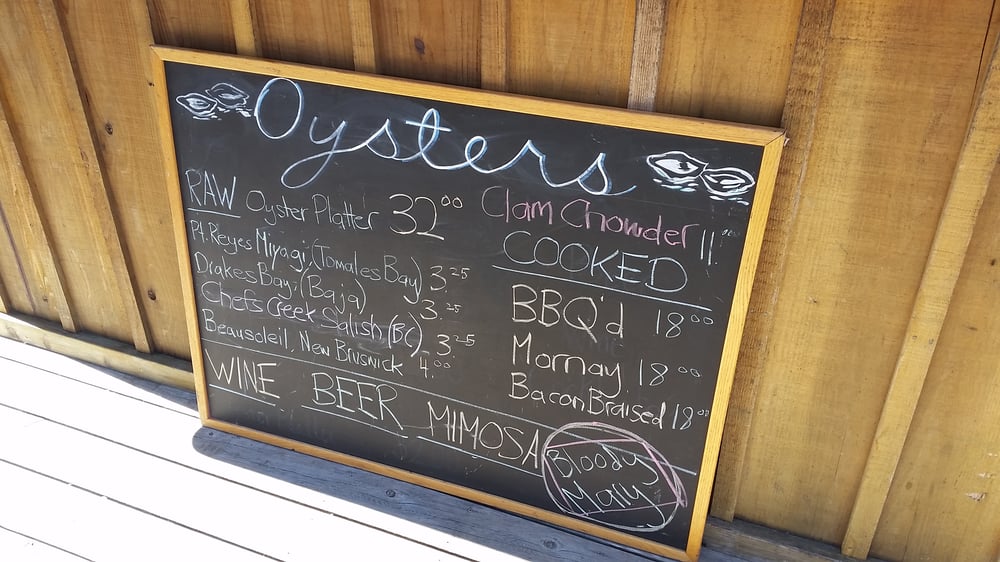 Oysters
RAW Oyster Platter 32.00
Pt. Reyes Miyagi; (Tomales Bay) 3.25
Drakes Bay; (Baja) 3.25
Chefs Creek Salish (BC) 3.25
Beausoleil, New Brusnick 4.00
Clam Chowder 11.00
COOKED
BBQ'd 18.00
Mornay 18.00
Bacon Braised 18.00
WINE BEER MIMOSA
Bloody
Mary